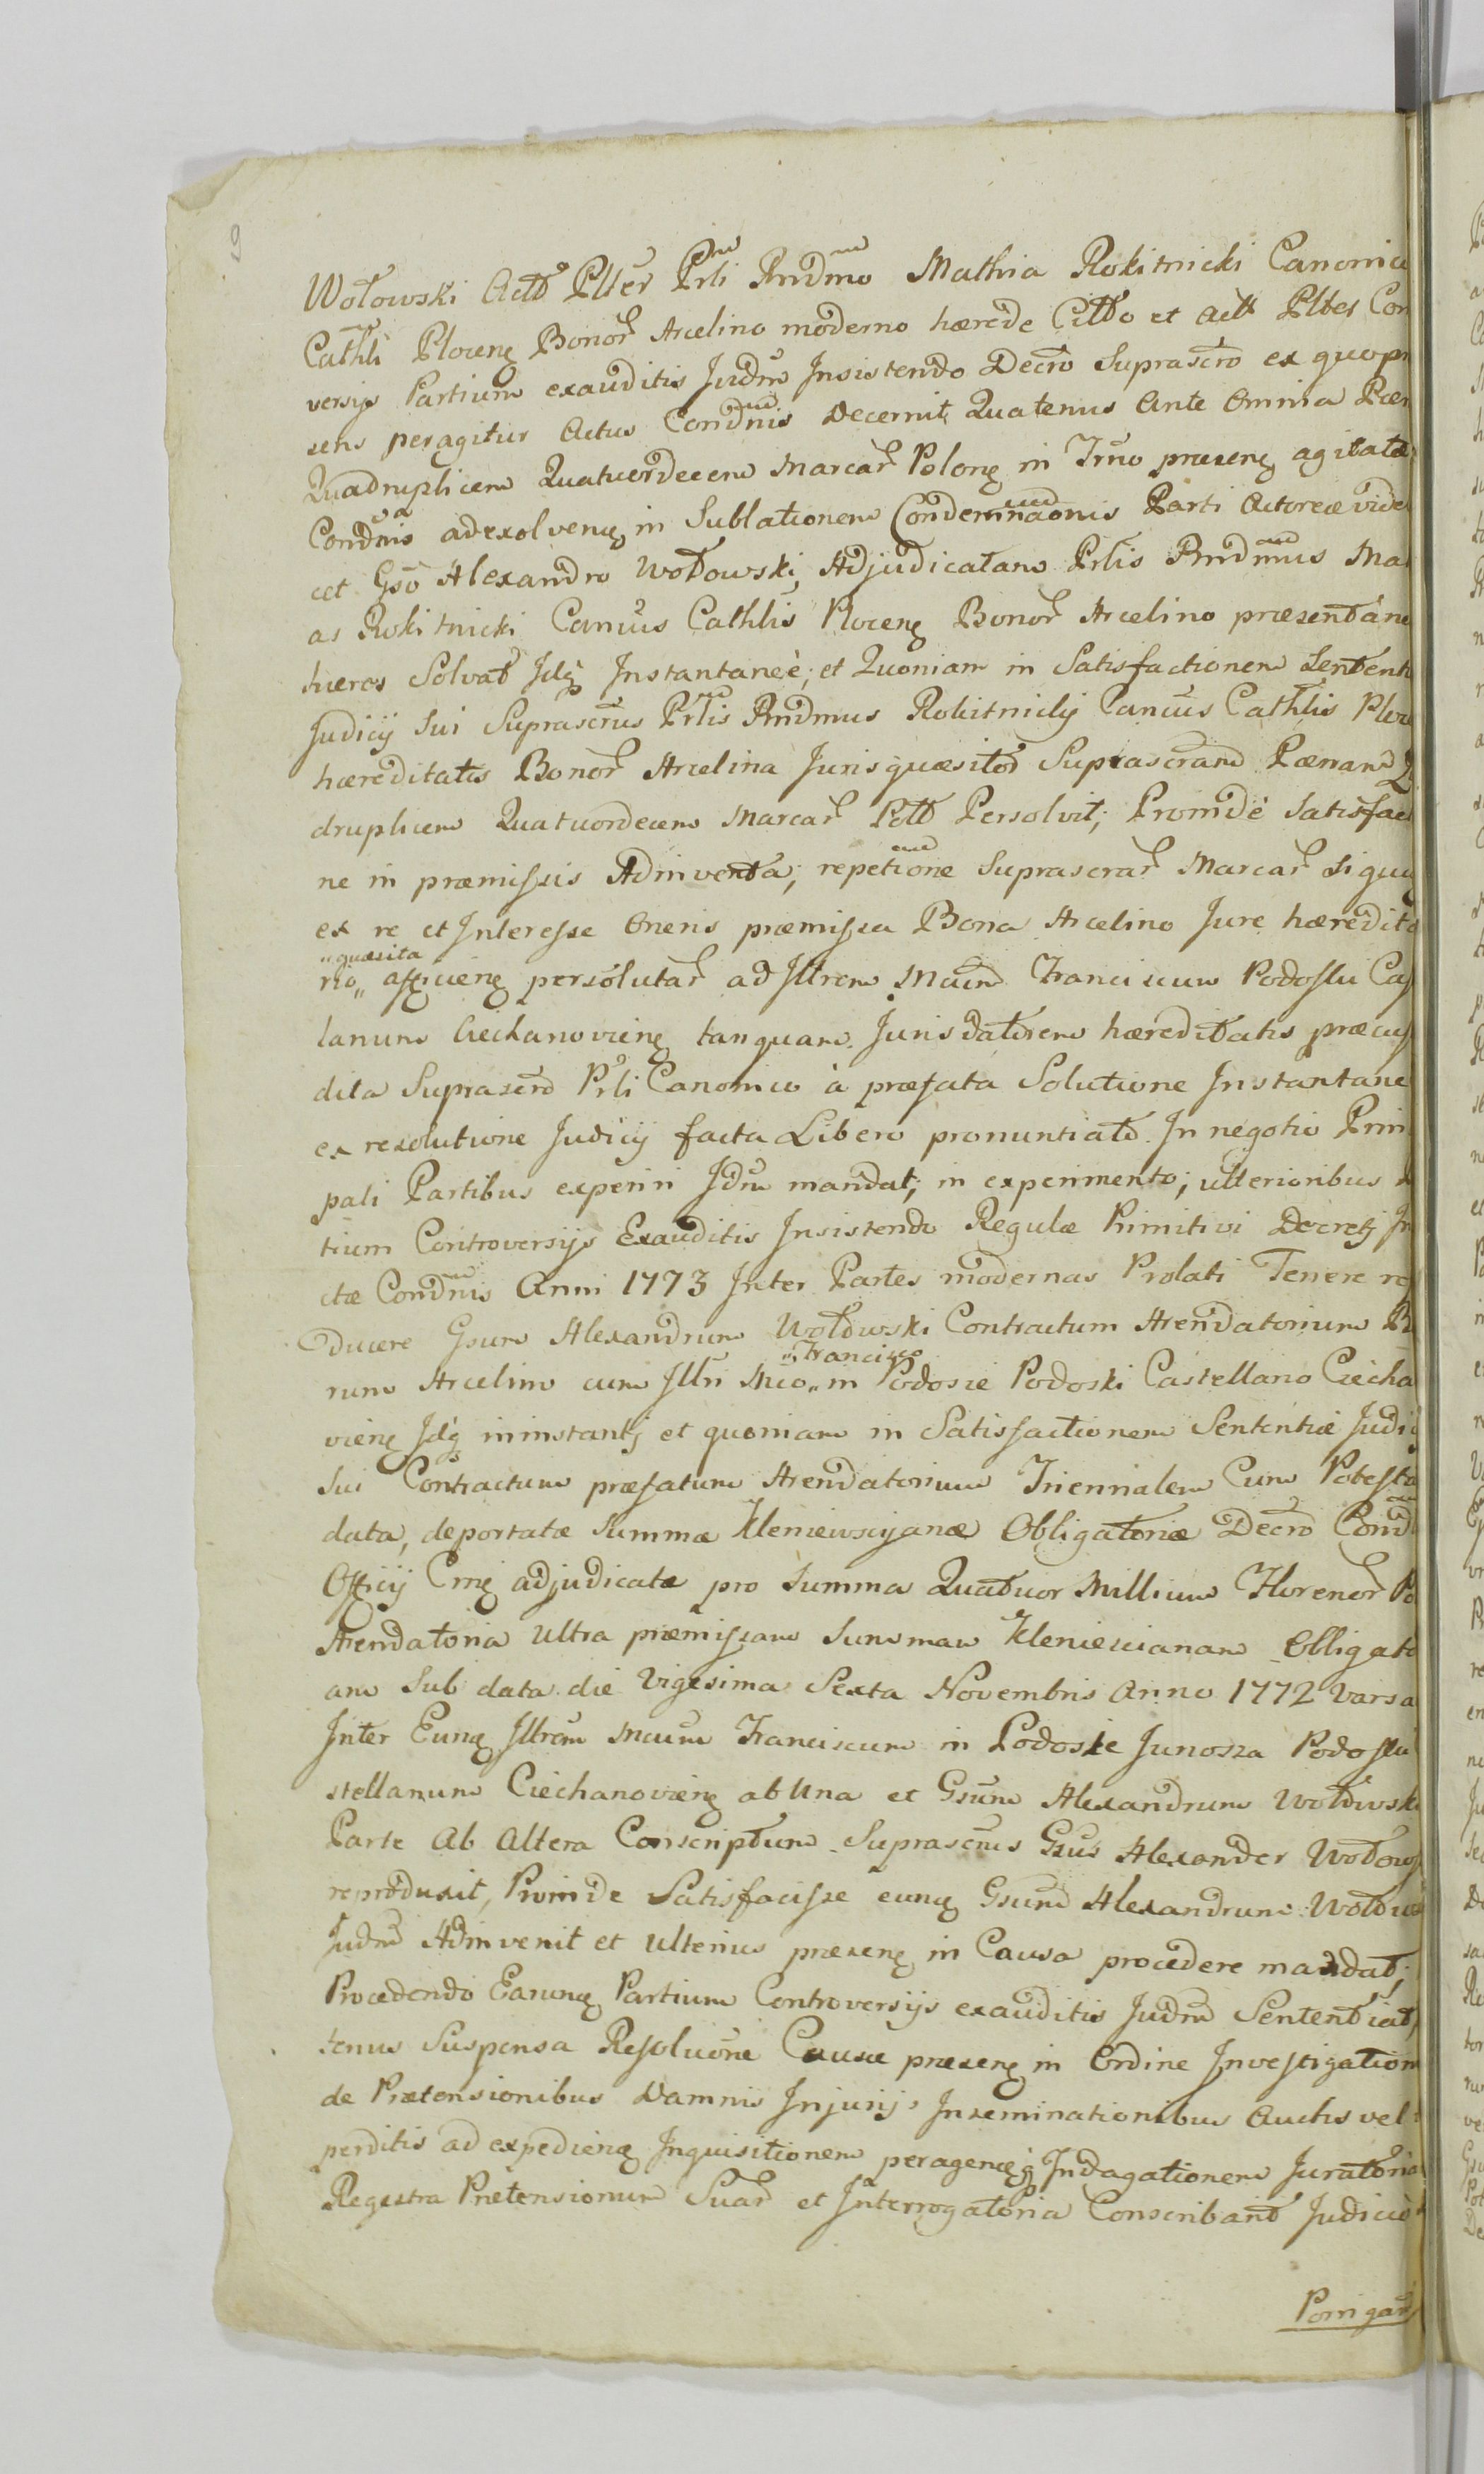 9
Wołowski Actō Plter Prli Rndmo Mathia Rokitnicki Canonico
Cathli Plocenę Bonor Arcelino moderno hærede Citto et Actt Pltes Con
versijs Partium exauditis Judm Insistendo Decro Suprascro ex quo præ
sens peragitur Actus Condnis decernit, Quatenus Ante Omnia Pæn
Quadruplicem Quatuordecem Marcar Polonę in Trno præsenę agitatæ
Condnis adexolvenę in Sublationem Condemnaonis Parti Actoreæ vide
cet Gso Alexandro Wołowski, Adjudicatam Prlis Rndmus Ma
as Rokitnicki Canuus Cathlis Plocenę Bonor Arcelino præsentane
hæres Solvat Idq Instantaneè; et Quoniam in Satisfactionem Sententi
Judicij Sui Suprascrus Prlis Rndmus Rokitnicki Canuus Cathlis Ploce
hæreditatis Bonor Arcelina Jurisquæsitor Suprascram Pænam Q
druplicem Quatuordecem Marcar Poll Persolvit; Proinde Satisfac
ne in præmissis Adinventa, repetione Suprascrar Marcar si quæ
ex re et Interesse Oneris præmissa Bona Arcelino Jure hæredita
rio „quæsita„ afficienę persolutar ad Illrem Mcum Franciscum Podoski Cas
lanum Ciechanovienę tanquam Jurisdatorem hæreditatis præcus
dita Suprascro Prli Canonico à præfata Solutione Instantane
ex resolutione Judicij facta Libero pronuntiato. In negotio Prin
pali Partibus experiri Jdm mandat; in experimento, ulterioribus
tium Controversijs Exauditis Insistendo Regulæ Primitivi Decreti In
ctæ Condnis Anni 1773 Inter Partes modernas Prolati Tenere re
ducere Gsum Alexandrum Wołowski Contractum Arendatorium B
rum Arcelino cum Illri Mco „Francisco„ in Podosie Podoski Castellano Ciecha
vienę Idq in instanti, et quoniam in Satisfactionem Sententiæ Judicij
Sui Contractum præfatum Arendatorium Triennalem Cum Potesta
data, deportatæ summæ Kleniewscijanæ Obligatoriæ Decro Cond
Officij Crnę adjudicatæ pro Summa Quatuor Millium Florenor Po
Arendatoria Ultra præmissam Summam Klenieucianam Obligato
am Sub data die Vigesima Sexta Novembris Anno 1772 Varsa
Inter Eunę Illrem Mcum Franciscum in Podosie Junosza Podoski
stellanum Ciechanovienę ab Una et Gsum Alexandrum Wołowski
Parte Ab Altera Conscriptum Suprascrus Gsus Alexander Wołows
reproduxit, Proinde Satisfecisse eunę Gsum Alexandrum Wołows
Judm Adinvenit et ulterius præsenę in Causa procedere mandat;
Procedendo Earunę Partium Controversijs exauditis Judm Sententiat,
tenus Suspensa Resoluone Causæ præsenę in Ordine Investigation
de Prætensionibus Damnis Injurijs Inseminationibus Auctis vel
perditis ad expedienę Inquisitionem peragenę q Indagationem Juratoria
Regestra Prætensionum Suar et Interrogatoria Conscribant Judicio
Porrigant